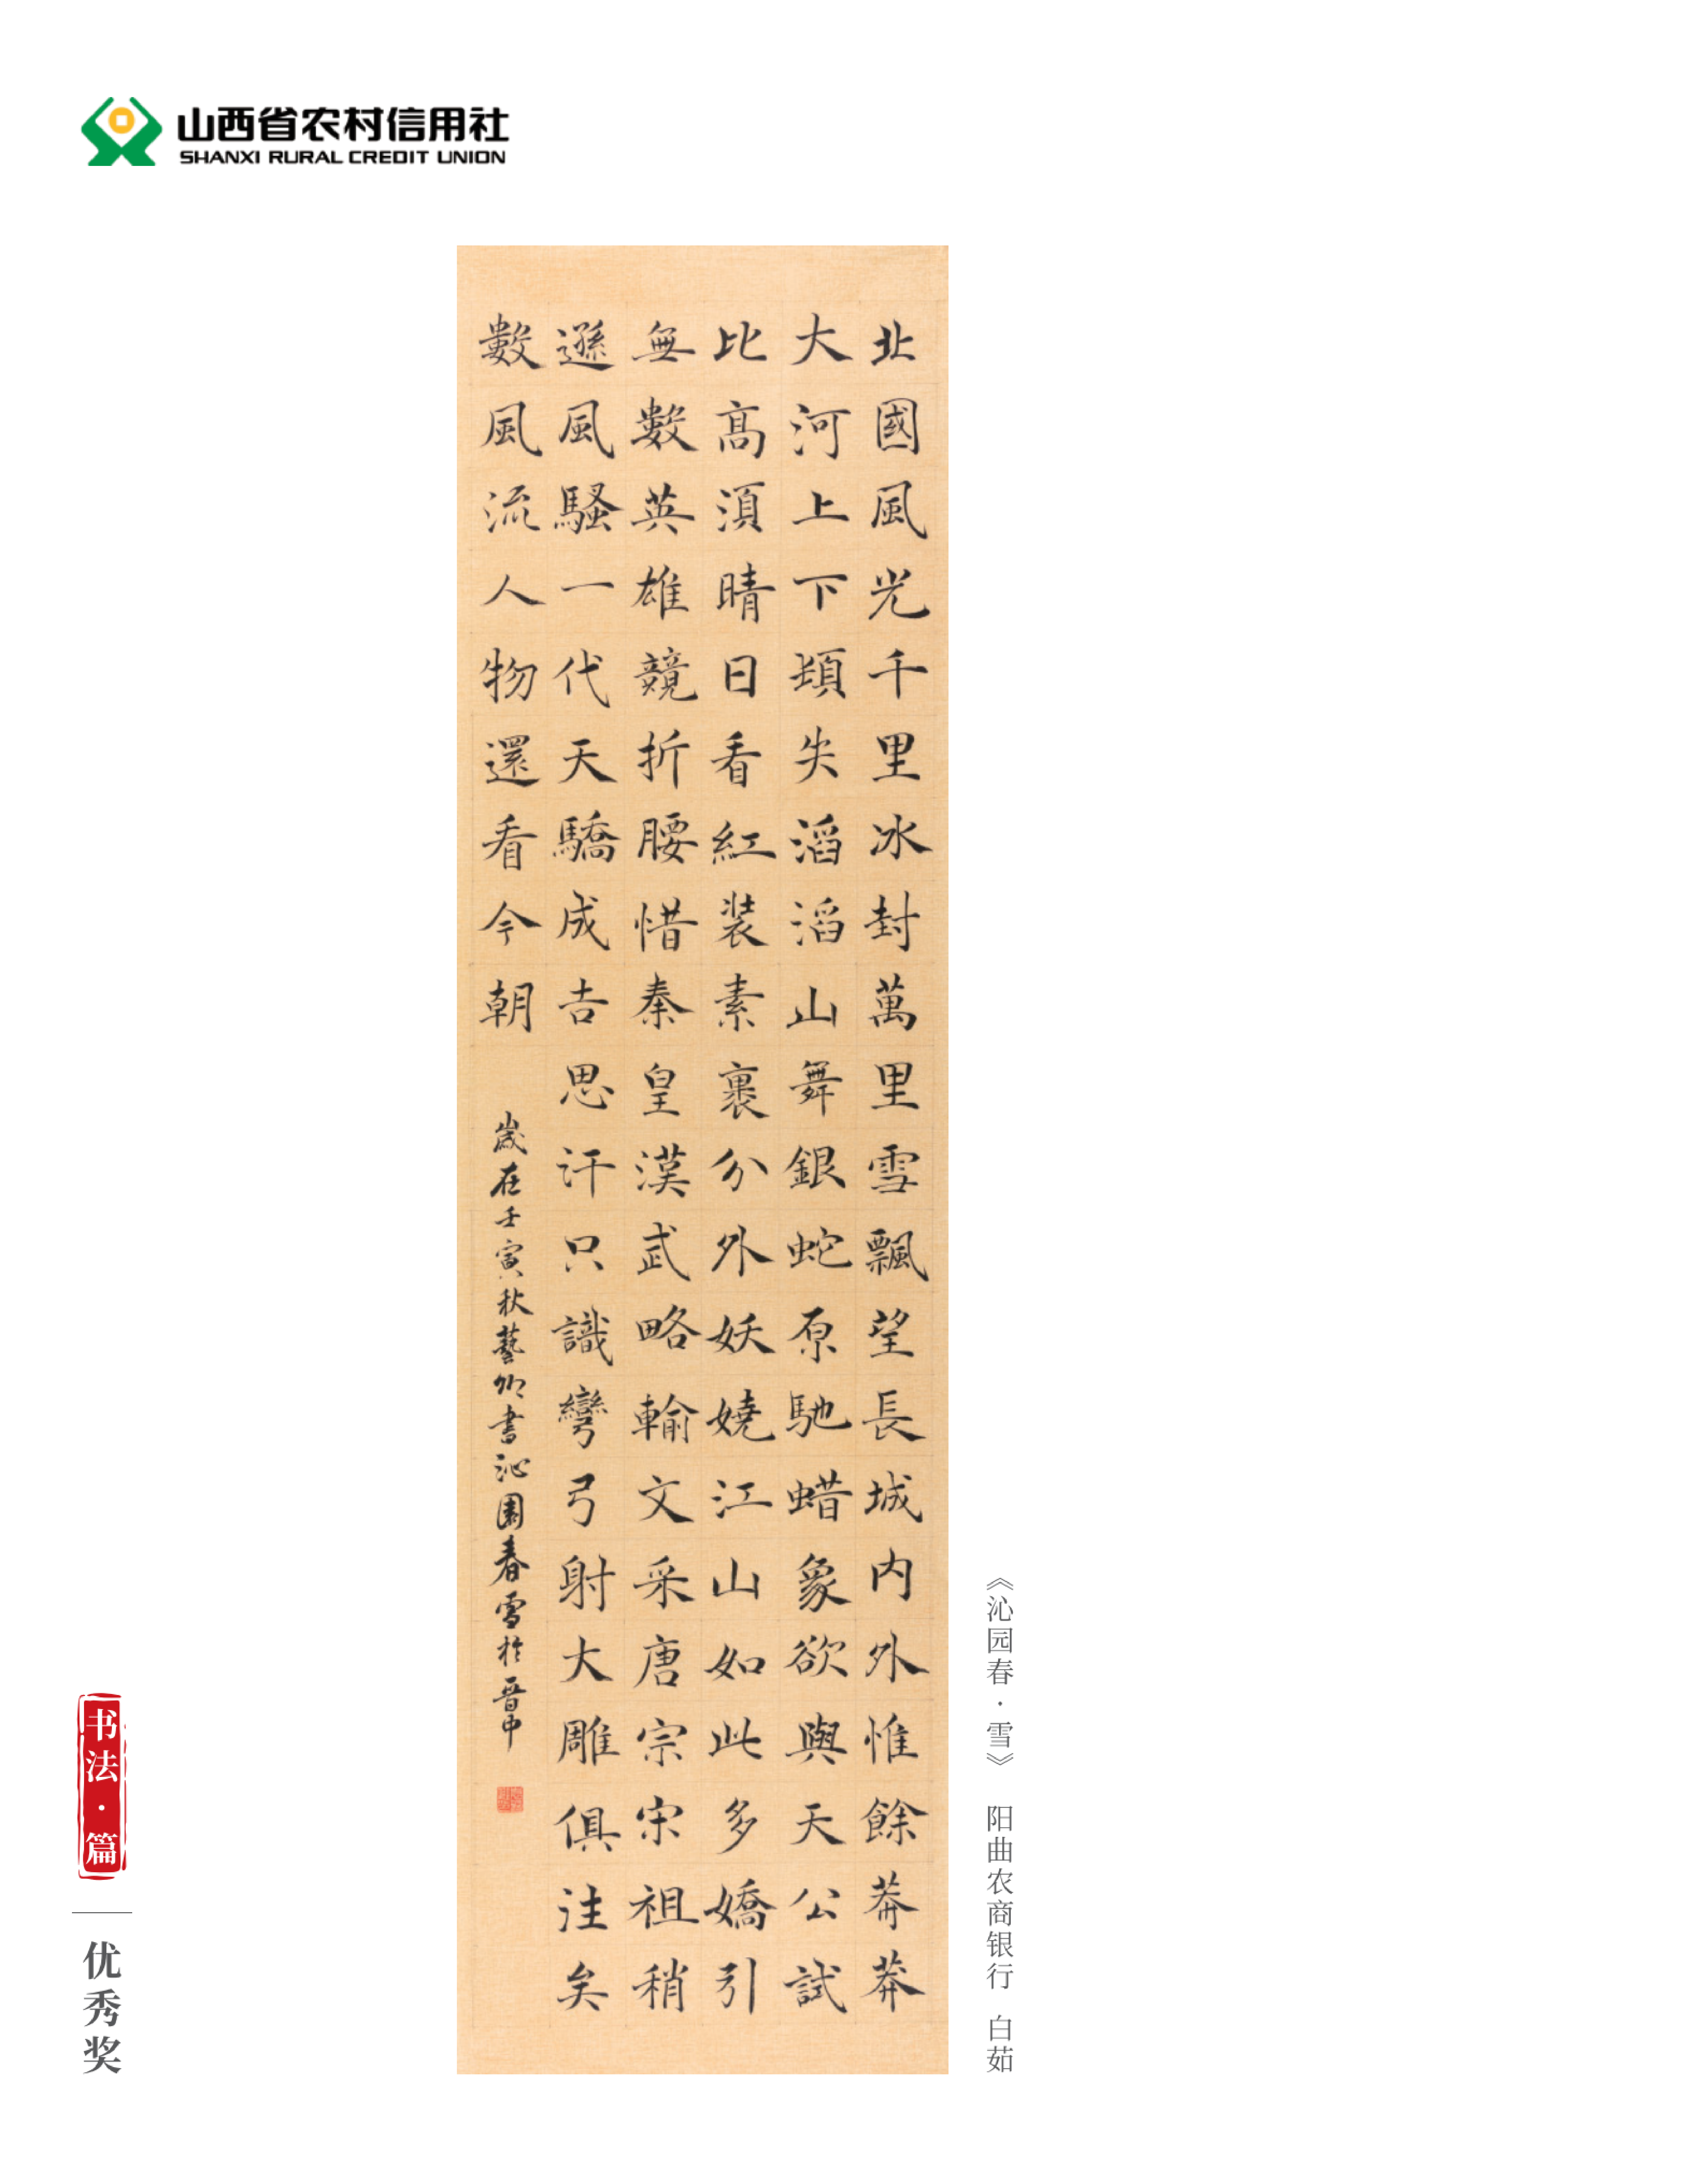 山西省农村信用社
SHANXI RURAL CREDIT UNION
北國風光千里冰封萬里雪飄望長城内外惟餘莽莽
大河上下頓失滔滔山舞銀蛇原馳蜡象欲與天公試
比高須晴日看紅装素裹分外妖嬈江山如此多嬌引
無數英雄競折腰惜秦皇漢武略輸文采唐宗宋祖稍
遜風騷一代天驕成吉思汗只識彎弓射大雕俱往矣
數風流人物還看今朝
歲在壬寅秋藝卿書沁園春雪於晋中
《沁园春·雪》 阳曲农商银行 白茹
书法·篇
优秀奖